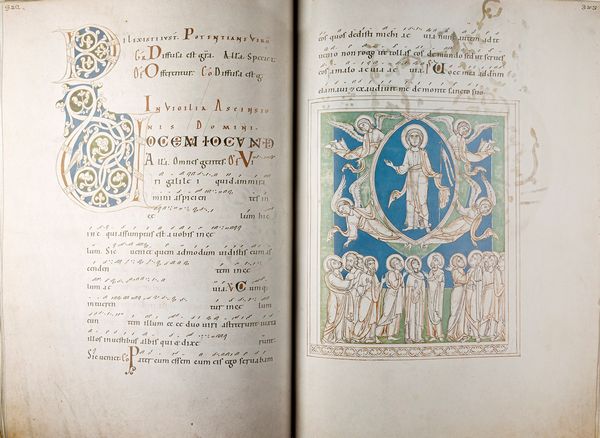 Dilexisti iust. Potentiane Virg
Ga Diffusa est gra. Alla. Specie t
Of Offerentur. Co Diffusa est g
In Vigilia Ascensio
nis Domini.
VOCEM IOCVND
Alla. Omnes gentes. Of Vi
ri galile i quid ammira
mini aspicien tes in
ec lum hic
ihc qui assumptus est a uobis in ec
lum. Sic ueniet quem admodum uidistis eum as
cenden tem in ec
lum ac uia. V Cumq;
intueren tur in ec lum
eun tem illum ecce duo uiri astiterunt iuxta
illos in uestibus albis qui & dixe runt.
Sic ueniet. Co Pater cum essem cum eis ego seruabam
eos quos dedisti michi ac uia nunc autem ad te
uenio non rogo ut tollas eos de mundo sed ut serues
eos a malo ac uia ac uia. Uoce mea ad dnm
clamaui & exaudiuit me de monte sancto suo